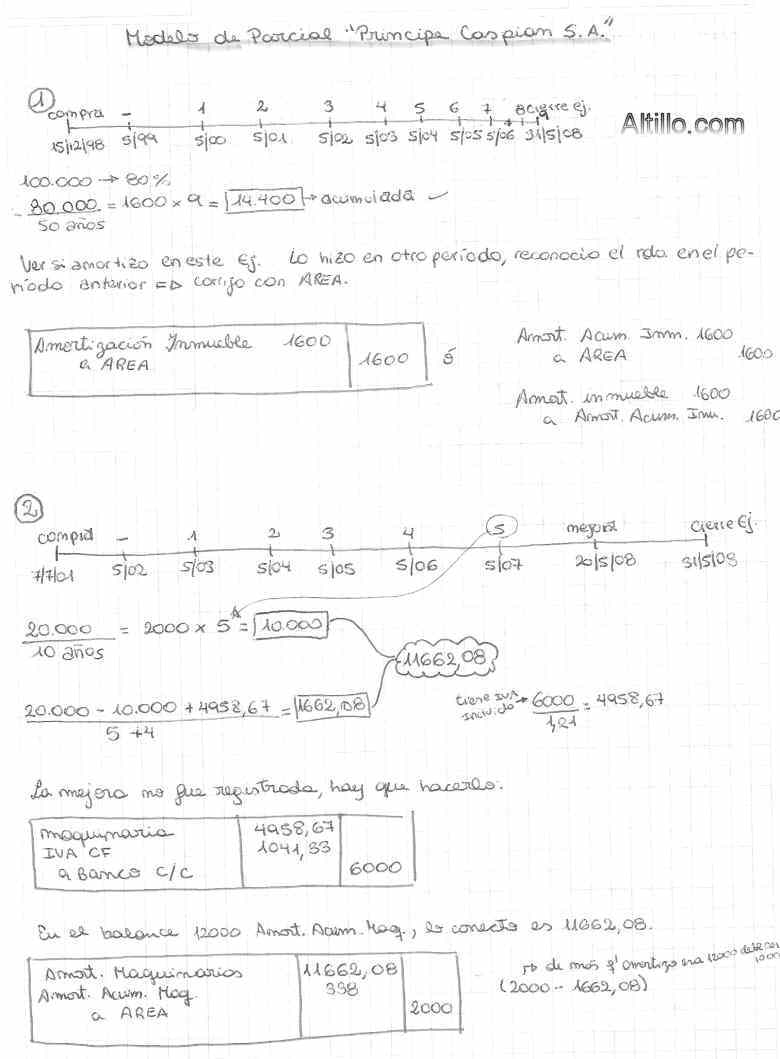 Modelo de Parcial "Principe Caspian S.A."
1
compra - 1 2 3 4 5 6 7 8 cierre ej.
9
15/12/98 5/99 5/00 5/01 5/02 5/03 5/04 5/05 5/06 31/5/08
Altillo.com
100.000 → 80%
80.000 = 1600 x 9 = 14.400 → acumulada ✓
50 años
Ver si amortizo en este Ej. Lo hizo en otro período, reconocio el rdo. en el pe-
ríodo anterior => corrijo con AREA.
Amortización Inmueble 1600
a AREA 1600
ó
Amort. Acum. Inm. 1600
a AREA 1600
Amort. inmueble 1600
a Amort. Acum. Inm. 1600
2
compra - 1 2 3 4 5 mejora cierre Ej.
7/7/01 5/02 5/03 5/04 5/05 5/06 5/07 20/5/08 31/5/08
20.000 = 2000 x 5 = 10.000
10 años
11662,08
20.000 - 10.000 + 4958,67 = 1662,08
5 + 4
tiene IVA
incluido → 6000 = 4958,67
1,21
La mejora no fue registrada, hay que hacerlo:
Maquinaria 4958,67
IVA CF 1041,33
a Banco C/C 6000
En el balance 12000 Amort. Acum. Maq., lo correcto es 11662,08.
Amort. Maquinarias 11662,08
Amort. Acum. Maq. 338
a AREA 2000
de más q' amortizo era 12000
(2000 - 1662,08)